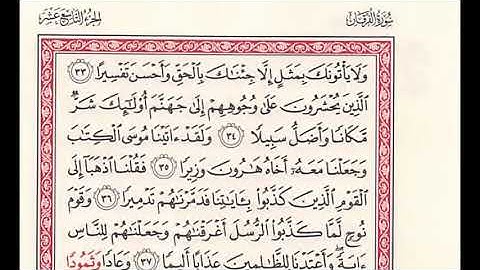 سُورَةُ الفُرْقَانِ الجُزْءُ التَّاسِعَ عَشَرَ
وَلَا يَأْتُونَكَ بِمَثَلٍ إِلَّا جِئْنَٰكَ بِٱلْحَقِّ وَأَحْسَنَ تَفْسِيرًا ٣٣
ٱلَّذِينَ يُحْشَرُونَ عَلَىٰ وُجُوهِهِمْ إِلَىٰ جَهَنَّمَ أُو۟لَٰٓئِكَ شَرٌّ
مَّكَانًا وَأَضَلُّ سَبِيلًا ٣٤ وَلَقَدْ ءَاتَيْنَا مُوسَى ٱلْكِتَٰبَ
وَجَعَلْنَا مَعَهُۥٓ أَخَاهُ هَٰرُونَ وَزِيرًا ٣٥ فَقُلْنَا ٱذْهَبَآ إِلَى
ٱلْقَوْمِ ٱلَّذِينَ كَذَّبُوا۟ بِـَٔايَٰتِنَا فَدَمَّرْنَٰهُمْ تَدْمِيرًا ٣٦ وَقَوْمَ
نُوحٍ لَّمَّا كَذَّبُوا۟ ٱلرُّسُلَ أَغْرَقْنَٰهُمْ وَجَعَلْنَٰهُمْ لِلنَّاسِ
ءَايَةً ۖ وَأَعْتَدْنَا لِلظَّٰلِمِينَ عَذَابًا أَلِيمًا ٣٧ وَعَادًا وَثَمُودَا۟